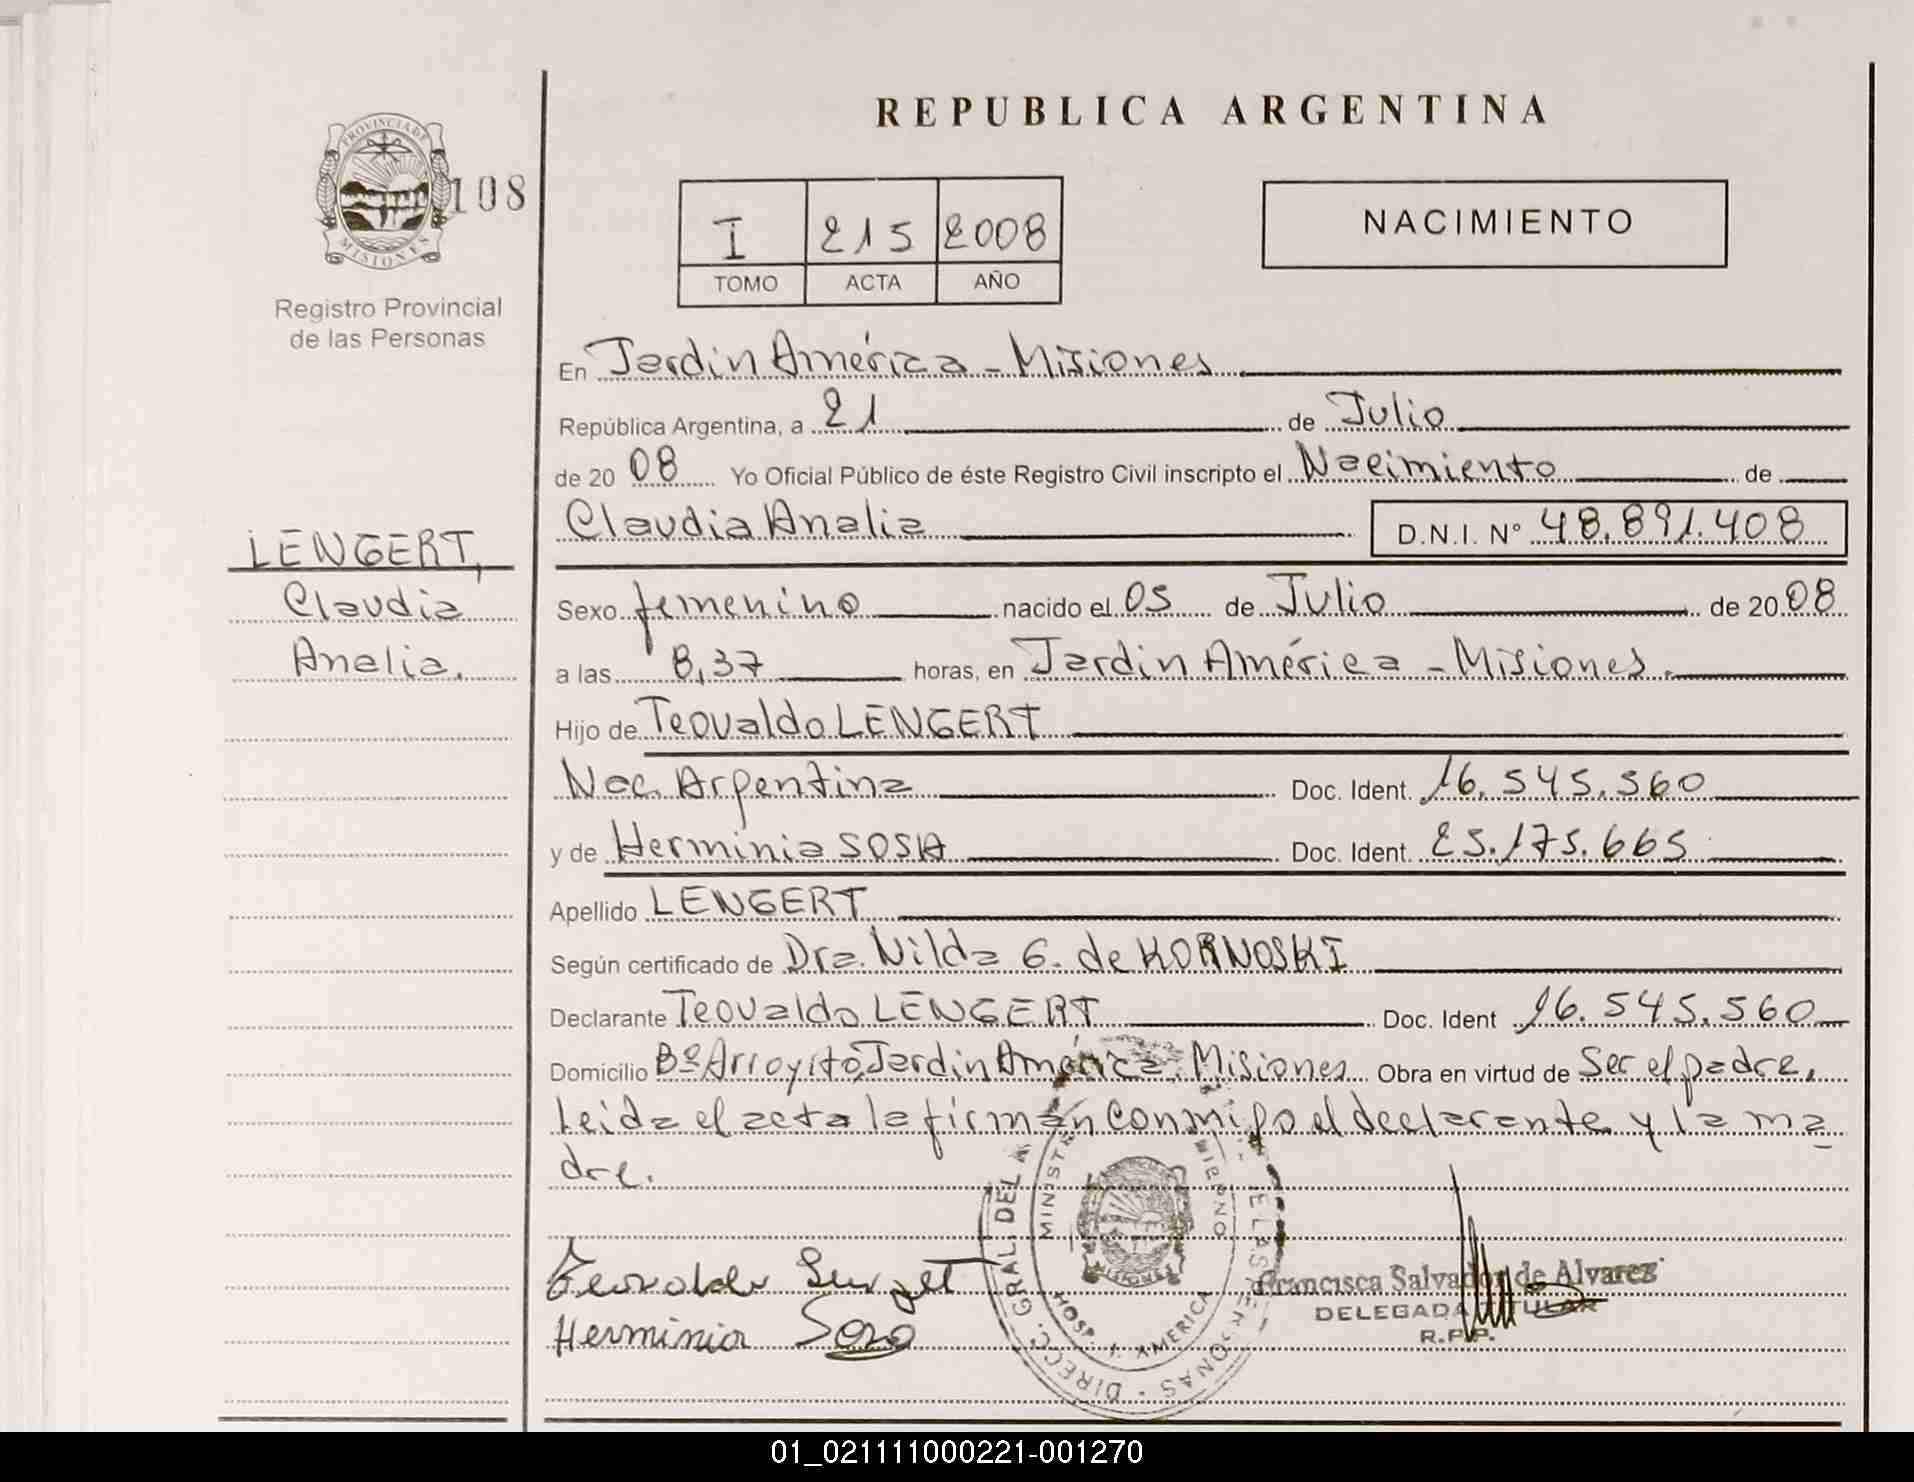 REPUBLICA ARGENTINA
PROVINCIA DE
MISIONES
108
I 215 2008
TOMO ACTA AÑO
NACIMIENTO
Registro Provincial
de las Personas
En Jardin América - Misiones
República Argentina, a 21 de Julio
de 20 08 Yo Oficial Público de éste Registro Civil inscripto el Nacimiento de
Claudia Analia D.N.I. Nº 48.891.408
LENGERT,
Claudia
Analia.
Sexo femenino nacido el 05 de Julio de 20 08
a las 8,37 horas, en Jardin América - Misiones.
Hijo de Teovaldo LENGERT
Nac. Argentina Doc. Ident. 16.545.560
y de Herminia SOSA Doc. Ident. 25.175.665
Apellido LENGERT
Según certificado de Dra. Nilda G. de KORNOSKI
Declarante Teovaldo LENGERT Doc. Ident 16.545.560
Domicilio Bº Arroyito, Jardin América, Misiones Obra en virtud de Ser el padre,
Leida el acta la firman conmigo el declarante y la ma
dre.
DIRECC. GRAL. DEL ELAS PERSONAS
MINIST
HOSP. J. AMERICA
MISIONES
Herminia
Francisca Salvador de Alvarez
DELEGADA TITULAR
R.P.P.
01_021111000221-001270